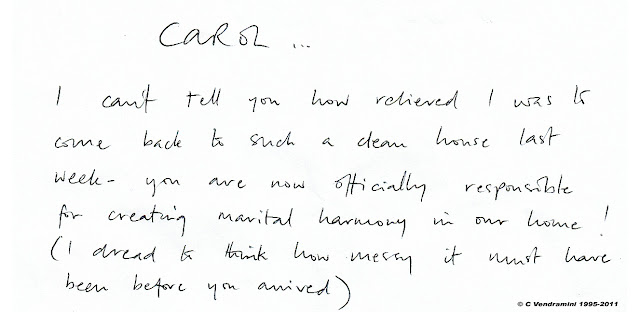 CAROL ...
I can't tell you how relieved I was to
come back to such a clean house last
week - you are now officially responsible
for creating marital harmony in our home!
(I dread to think how messy it must have
been before you arrived)
© C Vendramini 1995-2011